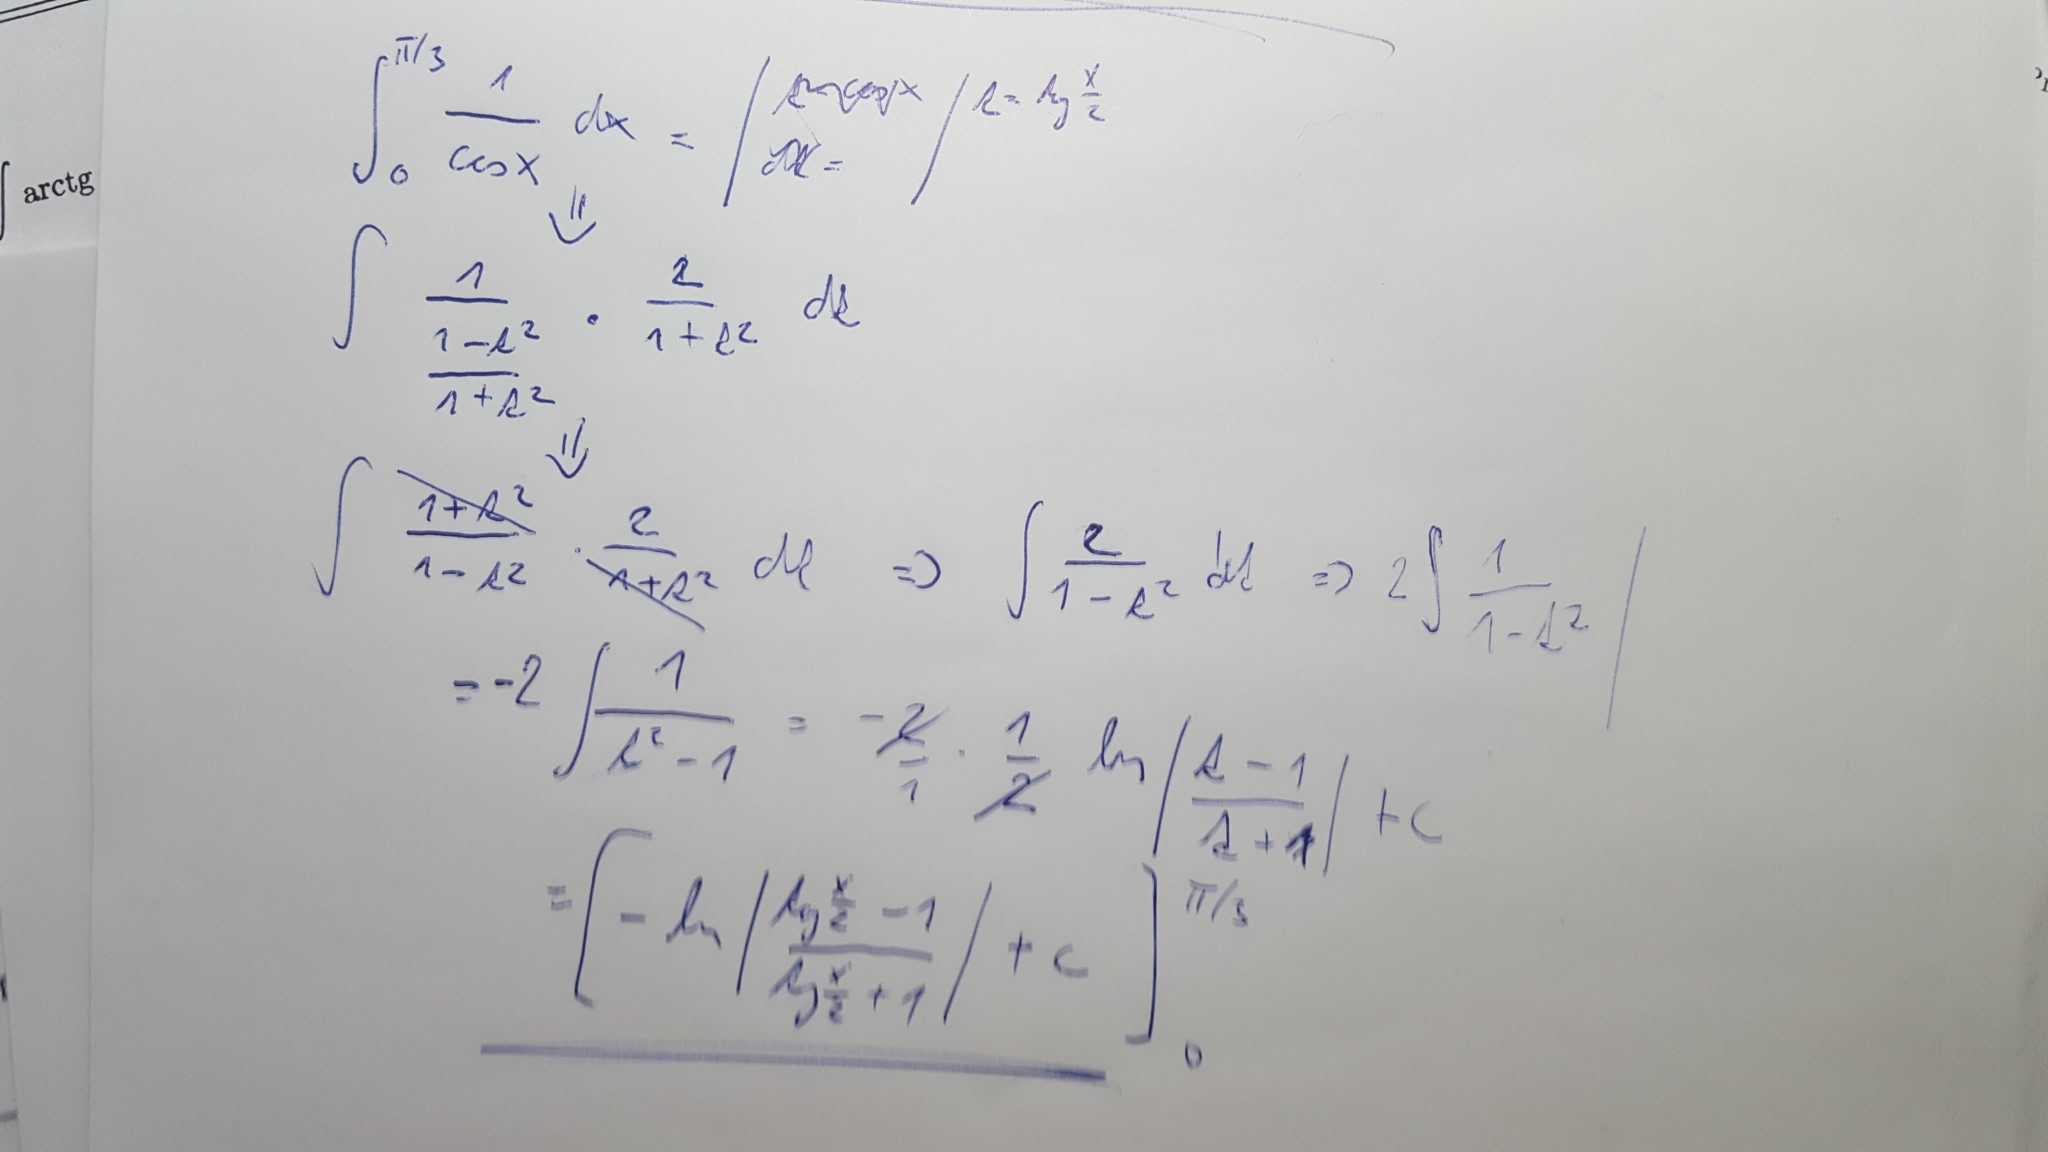 ∫₀^π/3 1/cosx dx = | dt = | t = tg x/2
∫ arctg
⇓
∫ 1/((1-t²)/(1+t²)) · 2/(1+t²) dt
⇓
∫ (1+t²)/(1-t²) · 2/(1+t²) dt => ∫ 2/(1-t²) dt => 2∫ 1/(1-t²) |
= -2 ∫ 1/(t²-1) = -2/1 · 1/2 ln |(t-1)/(t+1)| + c
= [ - ln |(tg x/2 - 1)/(tg x/2 + 1)| + c ]₀^π/3